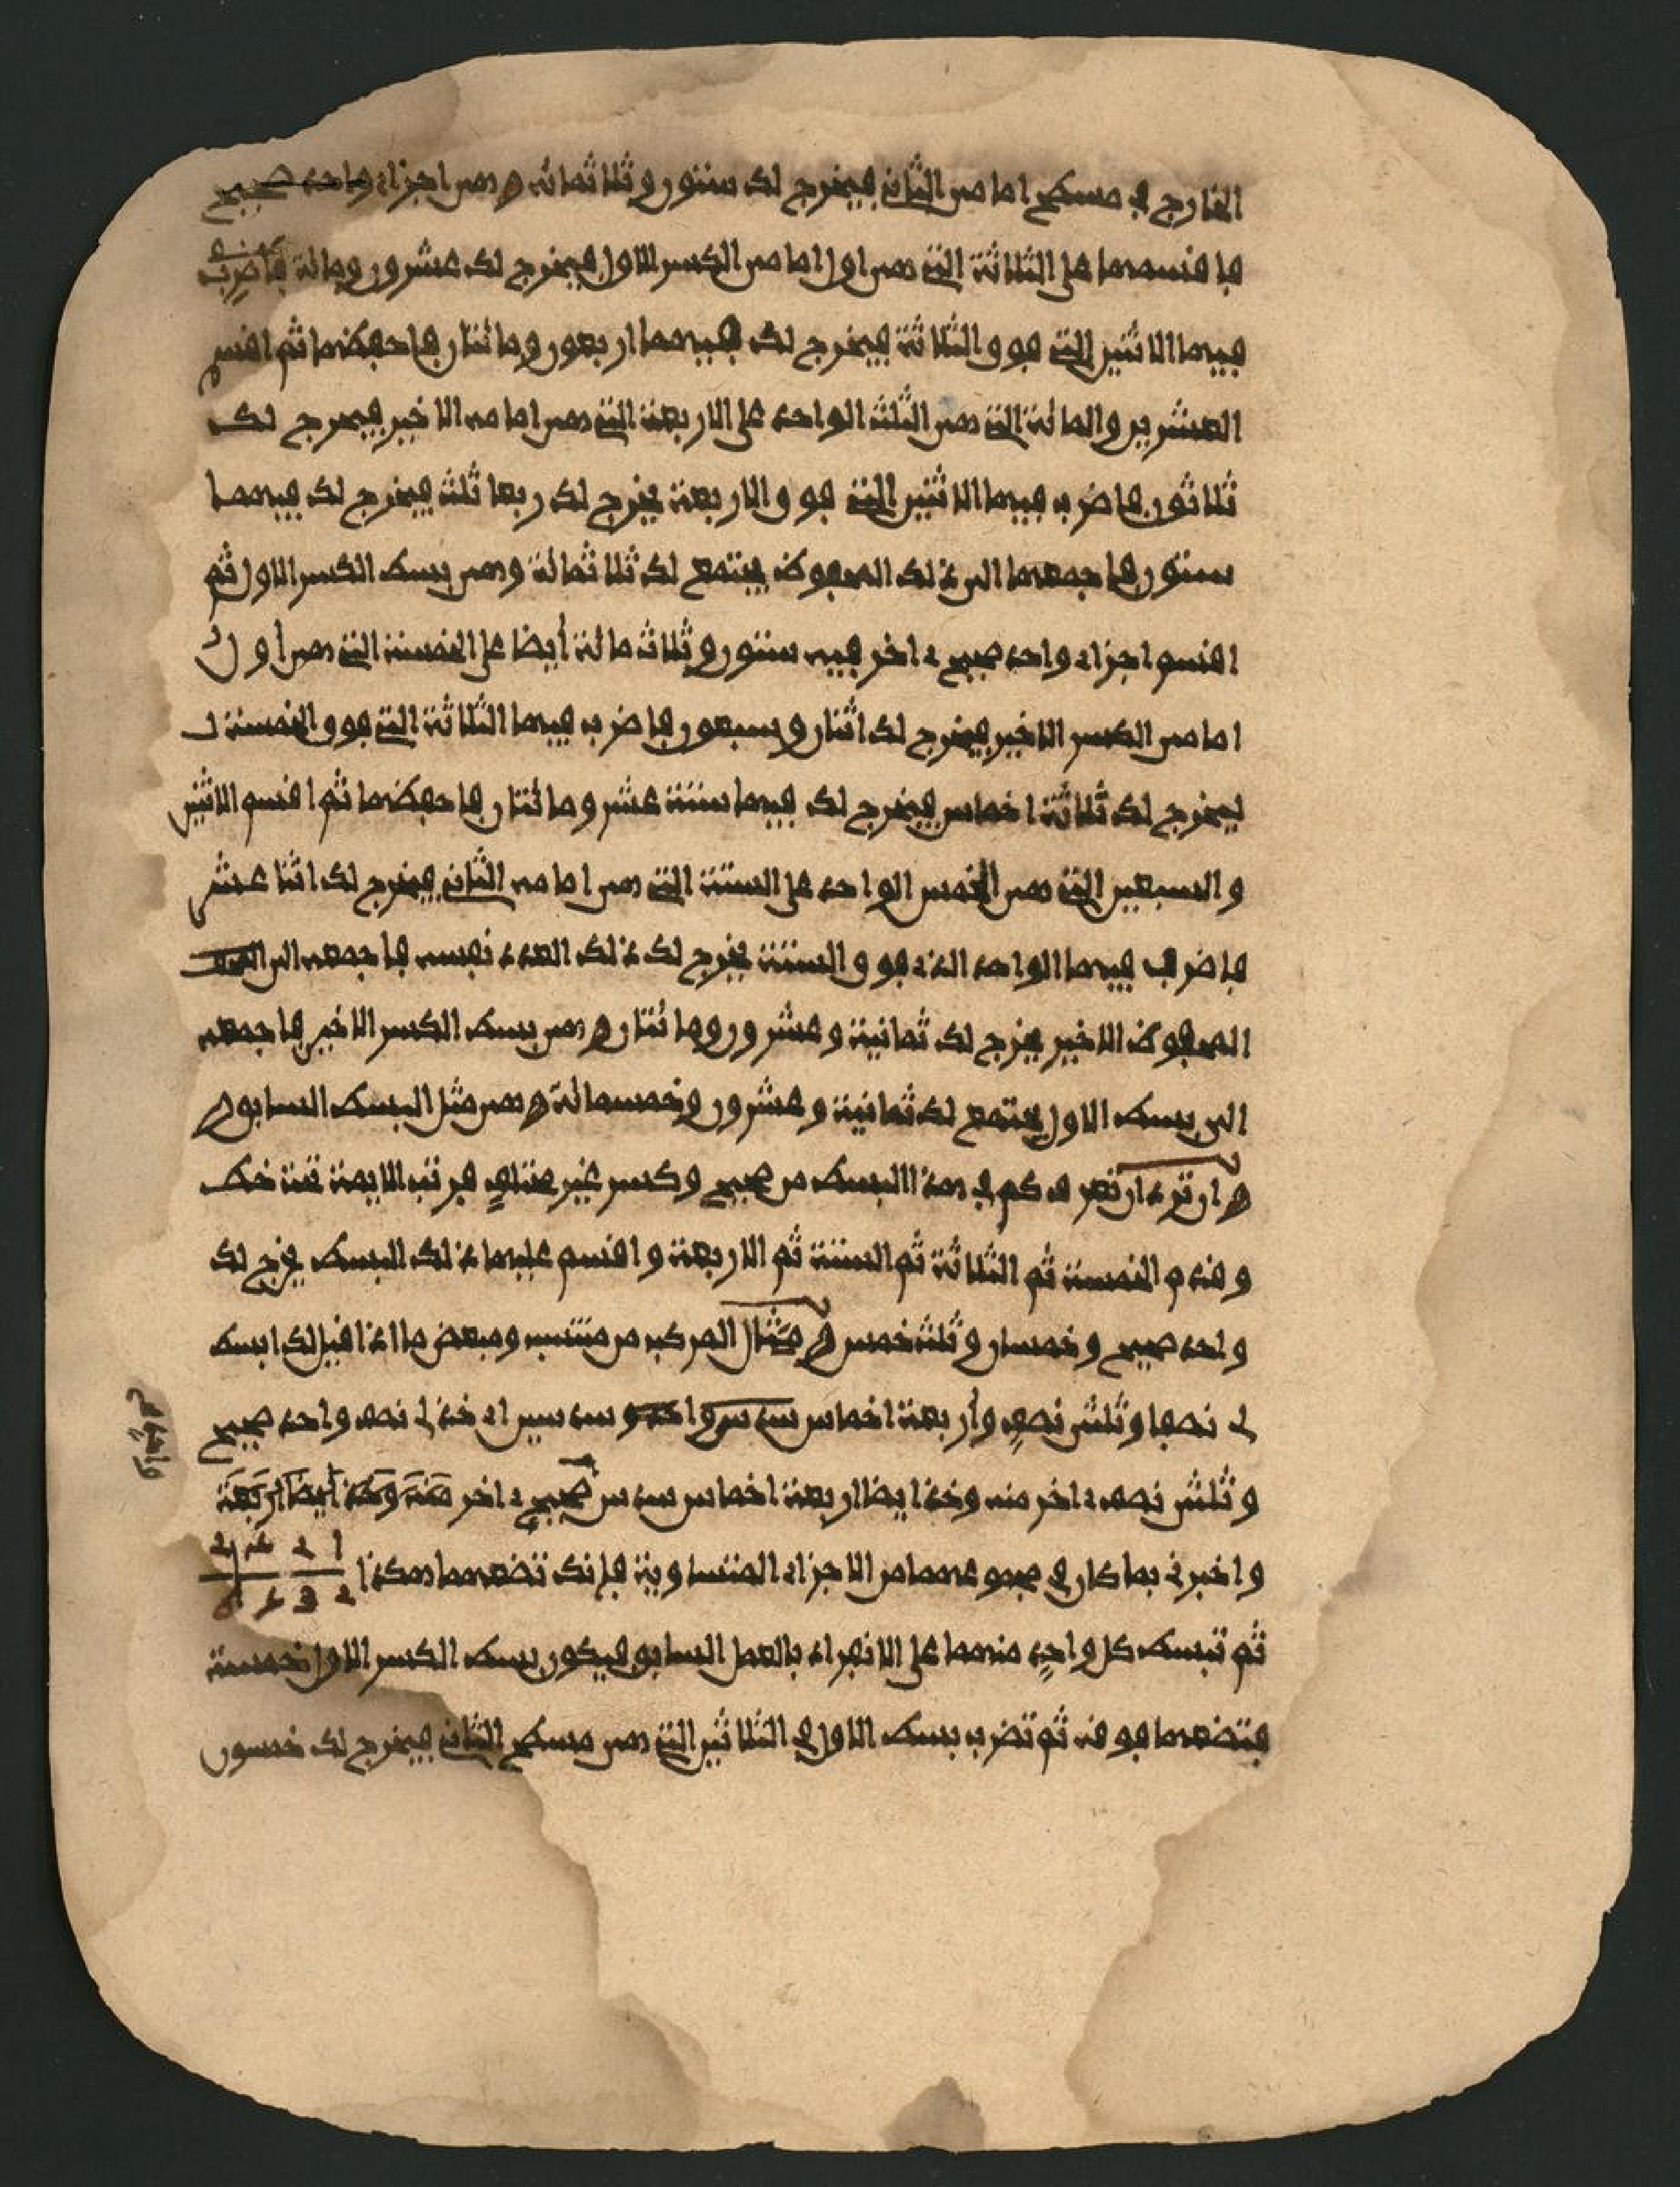 الخارج في مسطح امامي الثاني فيخرج لك ستون وثلاثمائة وهي اجزاء واحد صحيح
فاقسمها على الثلاثة التي هي اول امامي الكسر الاول فيخرج لك عشرون ومائة فاضرب
فيها الاثنين التي فوق الثلاثة فيخرج لك فيهما اربعون ومائتان فاحفظها ثم اقسم
العشرين والمائة التي هي الثلث الواحد على الاربعة التي هي امامه الاخير فيخرج لك
ثلاثون فاضرب فيها الاثنين التي فوق الاربعة يخرج لك ربعا ثلث فيخرج لك فيهما
ستون فاجمعها الى ذلك المحفوظ يجتمع لك ثلاثمائة وهي بسط الكسر الاول ثم
اقسم اجزاء واحد صحيح ءاخر فيه ستون وثلاث مائة أيضا على الخمسة التي هي أول
امامي الكسر الاخير فيخرج لك اثنان وسبعون فاضرب فيها الثلاثة التي فوق الخمسة لـ
ليخرج لك ثلاثة اخماس فيخرج لك فيها ستة عشر ومائتان فاحفظها ثم اقسم الاثنين
والسبعين التي هي الخمس الواحد على الستة التي هي امامه الثاني فيخرج لك اثنا عشر
فاضرب فيها الواحد الذي فوق الستة يخرج لك ذلك العدد نفسه فاجمعه الى
المحفوظ الاخير يخرج لك ثمانية وعشرون ومائتان وهي بسط الكسر الاخير فاجمعه
الى بسط الاول يجتمع لك ثمانية وعشرون وخمسمائة وهي مثل البسط السابق
وان ترد ان تعرف كم في هذا البسط من صحيح وكسر غير مختلف فرتب الايمة تحت خط
وقدم الخمسة ثم الثلاثة ثم الستة ثم الاربعة واقسم عليها ذلك البسط يخرج لك
واحد صحيح وخمسان وثلث خمس ومثال المركب من منتسب ومبعض ما اذا قيل لك ابسط
لي نصفا وثلثي نصف وأربعة اخماس سدس واحد وسدسين اي خذ لي نصف واحد صحيح
وثلثي نصف ءاخر منه وخذ ايضا اربعة اخماس سدس صحيح ءاخر
واخبرني بما كان في مجموعهما من الاجزاء المتساوية فإنك تضعهما هكذا
ثم تبسط كل واحد منهما على الانفراد بالعمل السابق فيكون بسط الكسر الاول خمسة
فتضعها فوقه ثم تضرب بسط الاول في الثلاثين التي هي مسطح الثاني فيخرج لك خمسون